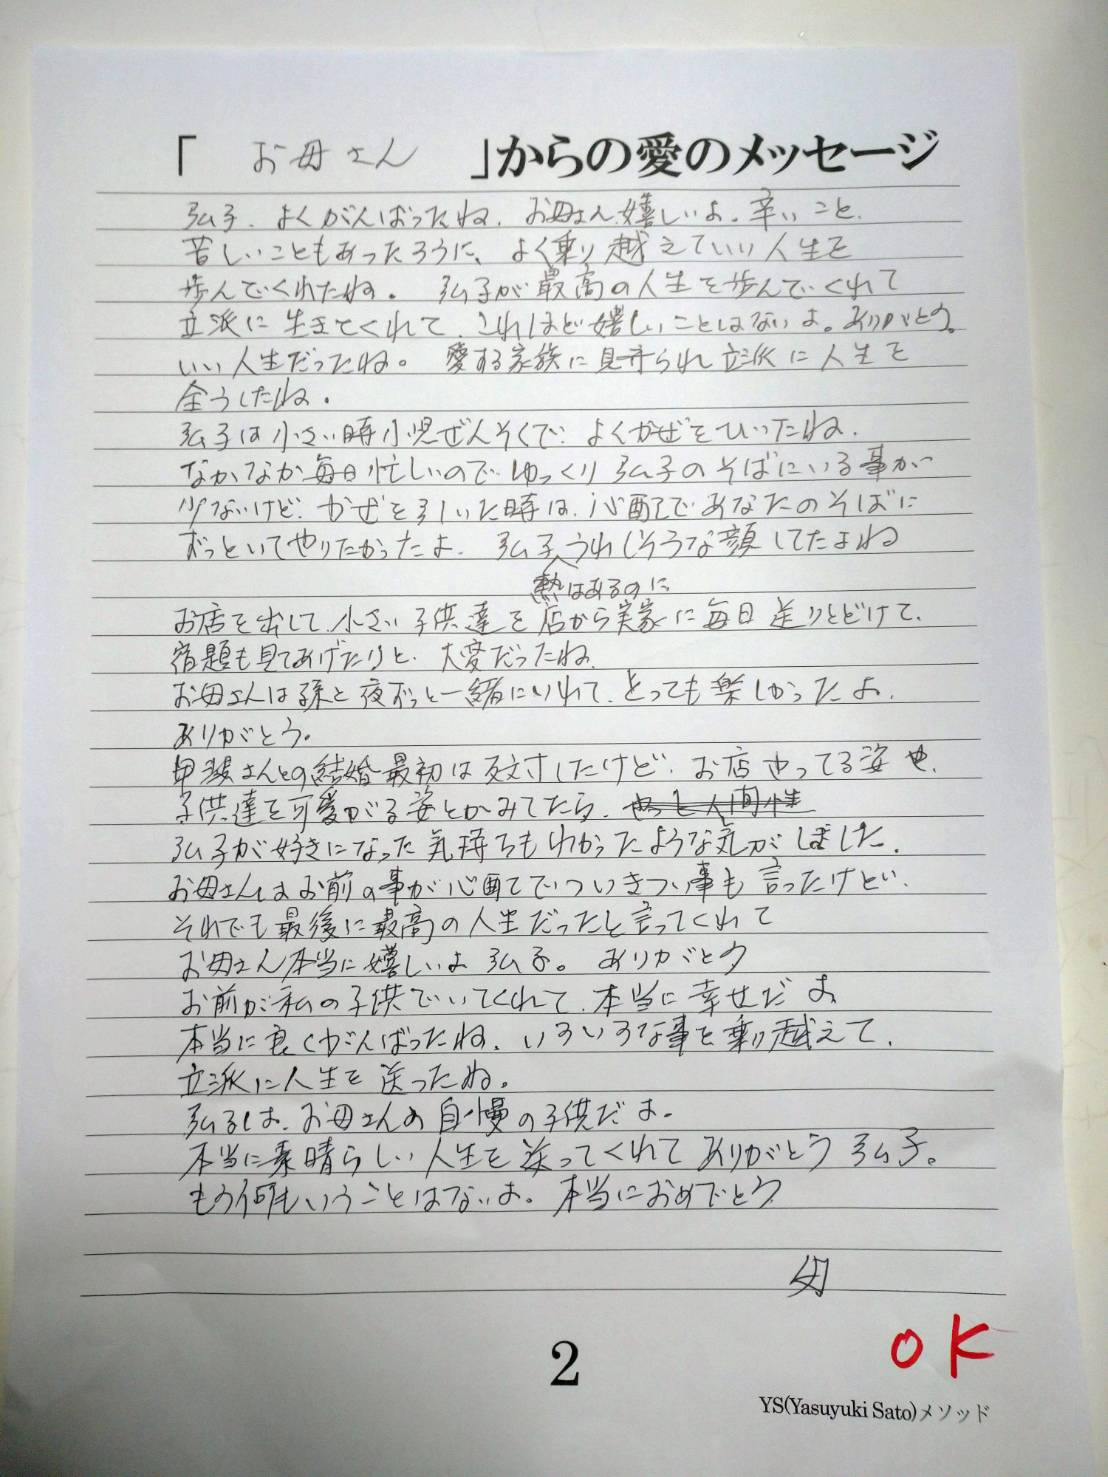 「 お母さん 」からの愛のメッセージ
弘子、よくがんばったね。お母さん嬉しいよ。辛いこと、
苦しいこともあったろうに、よく乗り越えていい人生を
歩んでくれたね。弘子が最高の人生を歩んでくれて
立派に生きてくれて、これほど嬉しいことはないよ。ありがとう。
いい人生だったね。愛する家族に見守られ立派に人生を
全うしたね。
弘子は小さい時小児ぜんそくで、よくかぜをひいたね。
なかなか毎日忙しいのでゆっくり弘子のそばにいる事が
少ないけど、かぜを引いた時は、心配であなたのそばに
ずっといてやりたかったよ。弘子うれしそうな顔してたよね
熱はあるのに
お店を出して、小さい子供達を店から実家に毎日送りとどけて、
宿題も見てあげたりと、大変だったね。
お母さんは孫と夜ずっと一緒にいれて、とっても楽しかったよ。
ありがとう。
さんとの結婚最初は反対したけど、お店やってる姿や、
子供達を可愛がる姿とかみてたら、
弘子が好きになった気持ちもわかったような気がしました。
お母さんはお前の事が心配でついきつい事も言ったけど、
それでも最後に最高の人生だったと言ってくれて
お母さん本当に嬉しいよ 弘子。ありがとう
お前が私の子供でいてくれて、本当に幸せだよ
本当に良くがんばったね。いろいろな事を乗り越えて、
立派に人生を送ったね。
弘子は、お母さんの自慢の子供だよ。
本当に素晴らしい人生を送ってくれてありがとう 弘子。
もう何もいうことはないよ。本当におめでとう
母
OK
2
YS(Yasuyuki Sato)メソッド